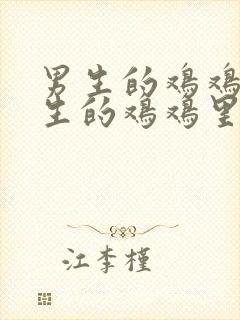 男生的鸡鸡
生的鸡鸡里
江李槿